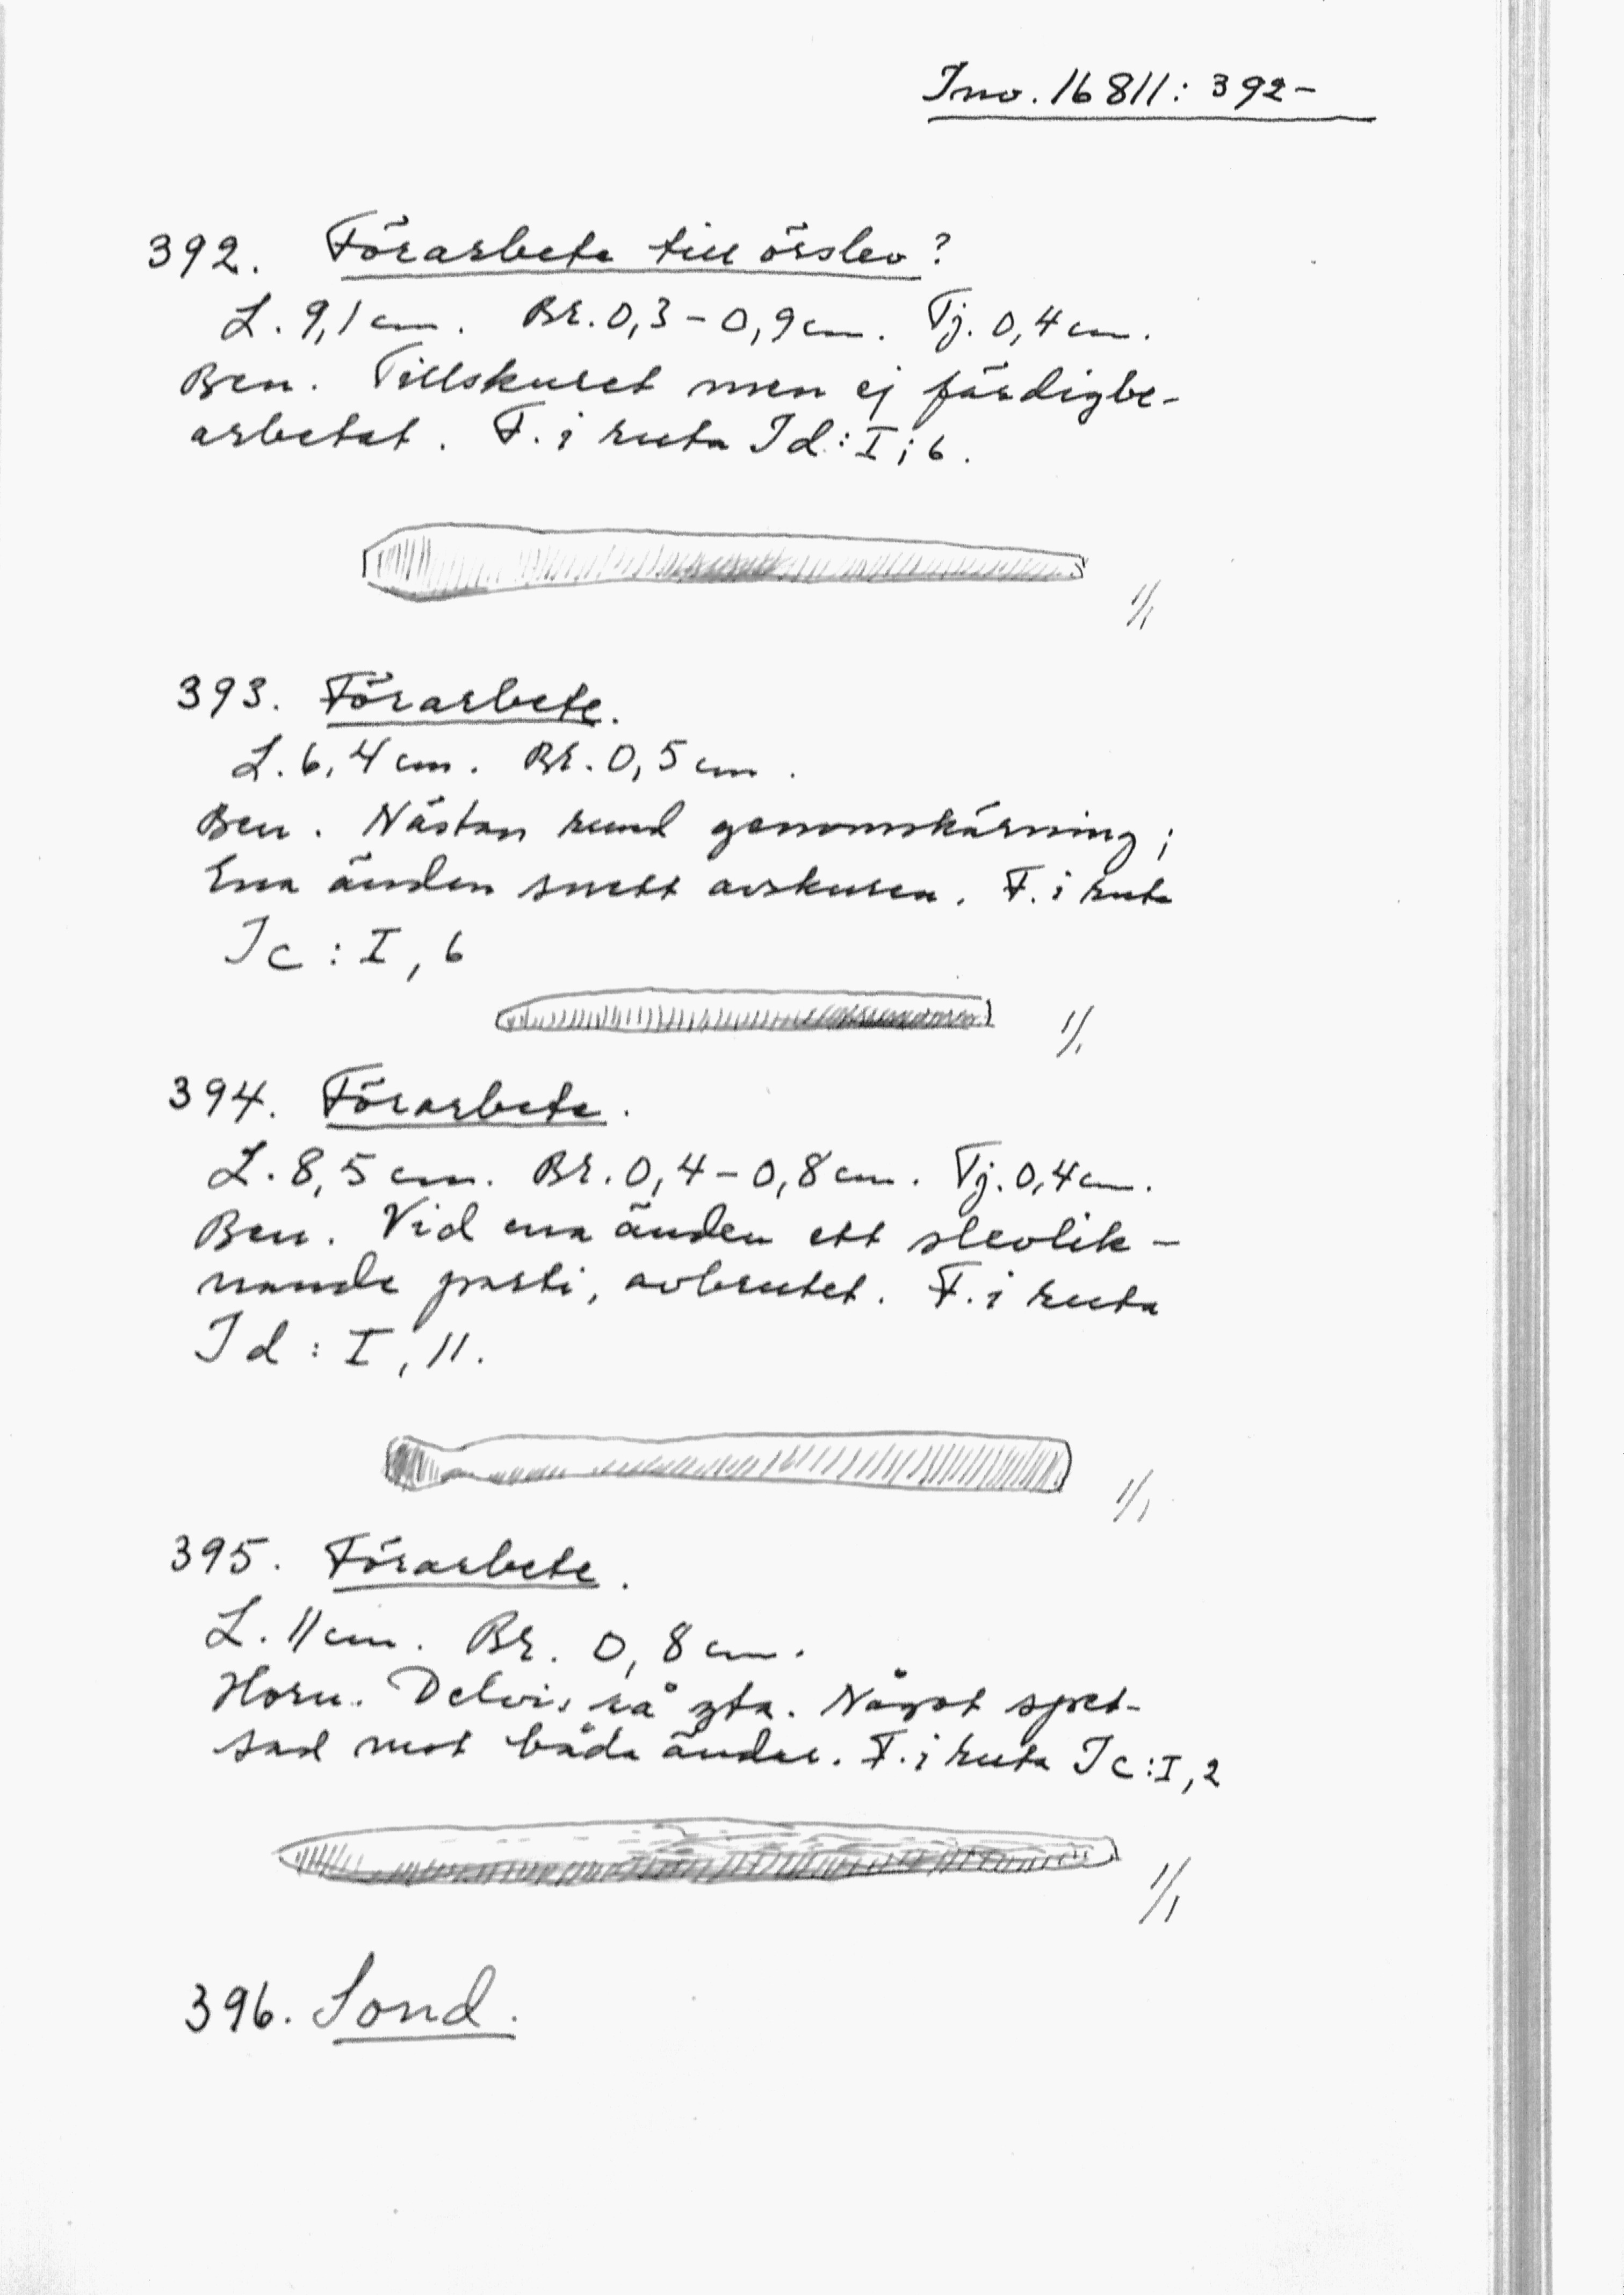 Inv. 16811: 392-
392. Förarbete till örslev?
L. 9,1 cm. Br. 0,3 - 0,9 cm. Tj. 0,4 cm.
Ben. Tillskuret men ej färdigbe-
arbetat. F. i ruta Id: I; 6.
1/1
393. Förarbete.
L. 6,4 cm. Br. 0,5 cm.
Ben. Nästan rund genomskärning;
Ena änden snett avskuren. F. i ruta
Ic: I, 6
1/1
394. Förarbete.
L. 8,5 cm. Br. 0,4 - 0,8 cm. Tj. 0,4 cm.
Ben. Vid ena änden ett slevlik-
nande parti, avbrutet. F. i ruta
Id: I, 11.
1/1
395. Förarbete.
L. 11 cm. Br. 0,8 cm.
Horn. Delvis rå yta. Något spet-
sad mot båda ändar. F. i ruta Ic: I, 2
1/1
396. Sond.